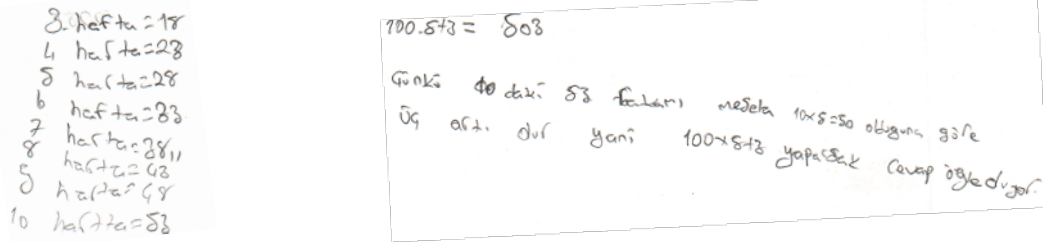 3. hafta = 18
4 hafta = 23
5 hafta = 28
6 hafta = 33
7 hafta = 38
8 hafta = 43
9 hafta = 48
10 haftta = 53
100.5+3 = 503
Çünkü 10 daki 53 meseta 10x5=50 olduguna göre
üç artı dır yani 100x5+3 yaparsak cevap öğle duyor.